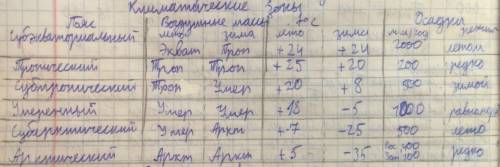 Климатические Зоны
Пояс Воздушные массы t°C Осадки
лето зима лето зима мм/год режим
Субэкваториальный Экват Троп +24 +24 2000 летом
Тропический Троп Троп +25 +20 200 редко
Субтропический Троп Умер +20 +8 500 зимой
Умеренный Умер Умер +18 -5 1000
Субарктический Умер Аркт +7 -25 500 лето
Арктический Аркт Аркт +5 -35 400 редко